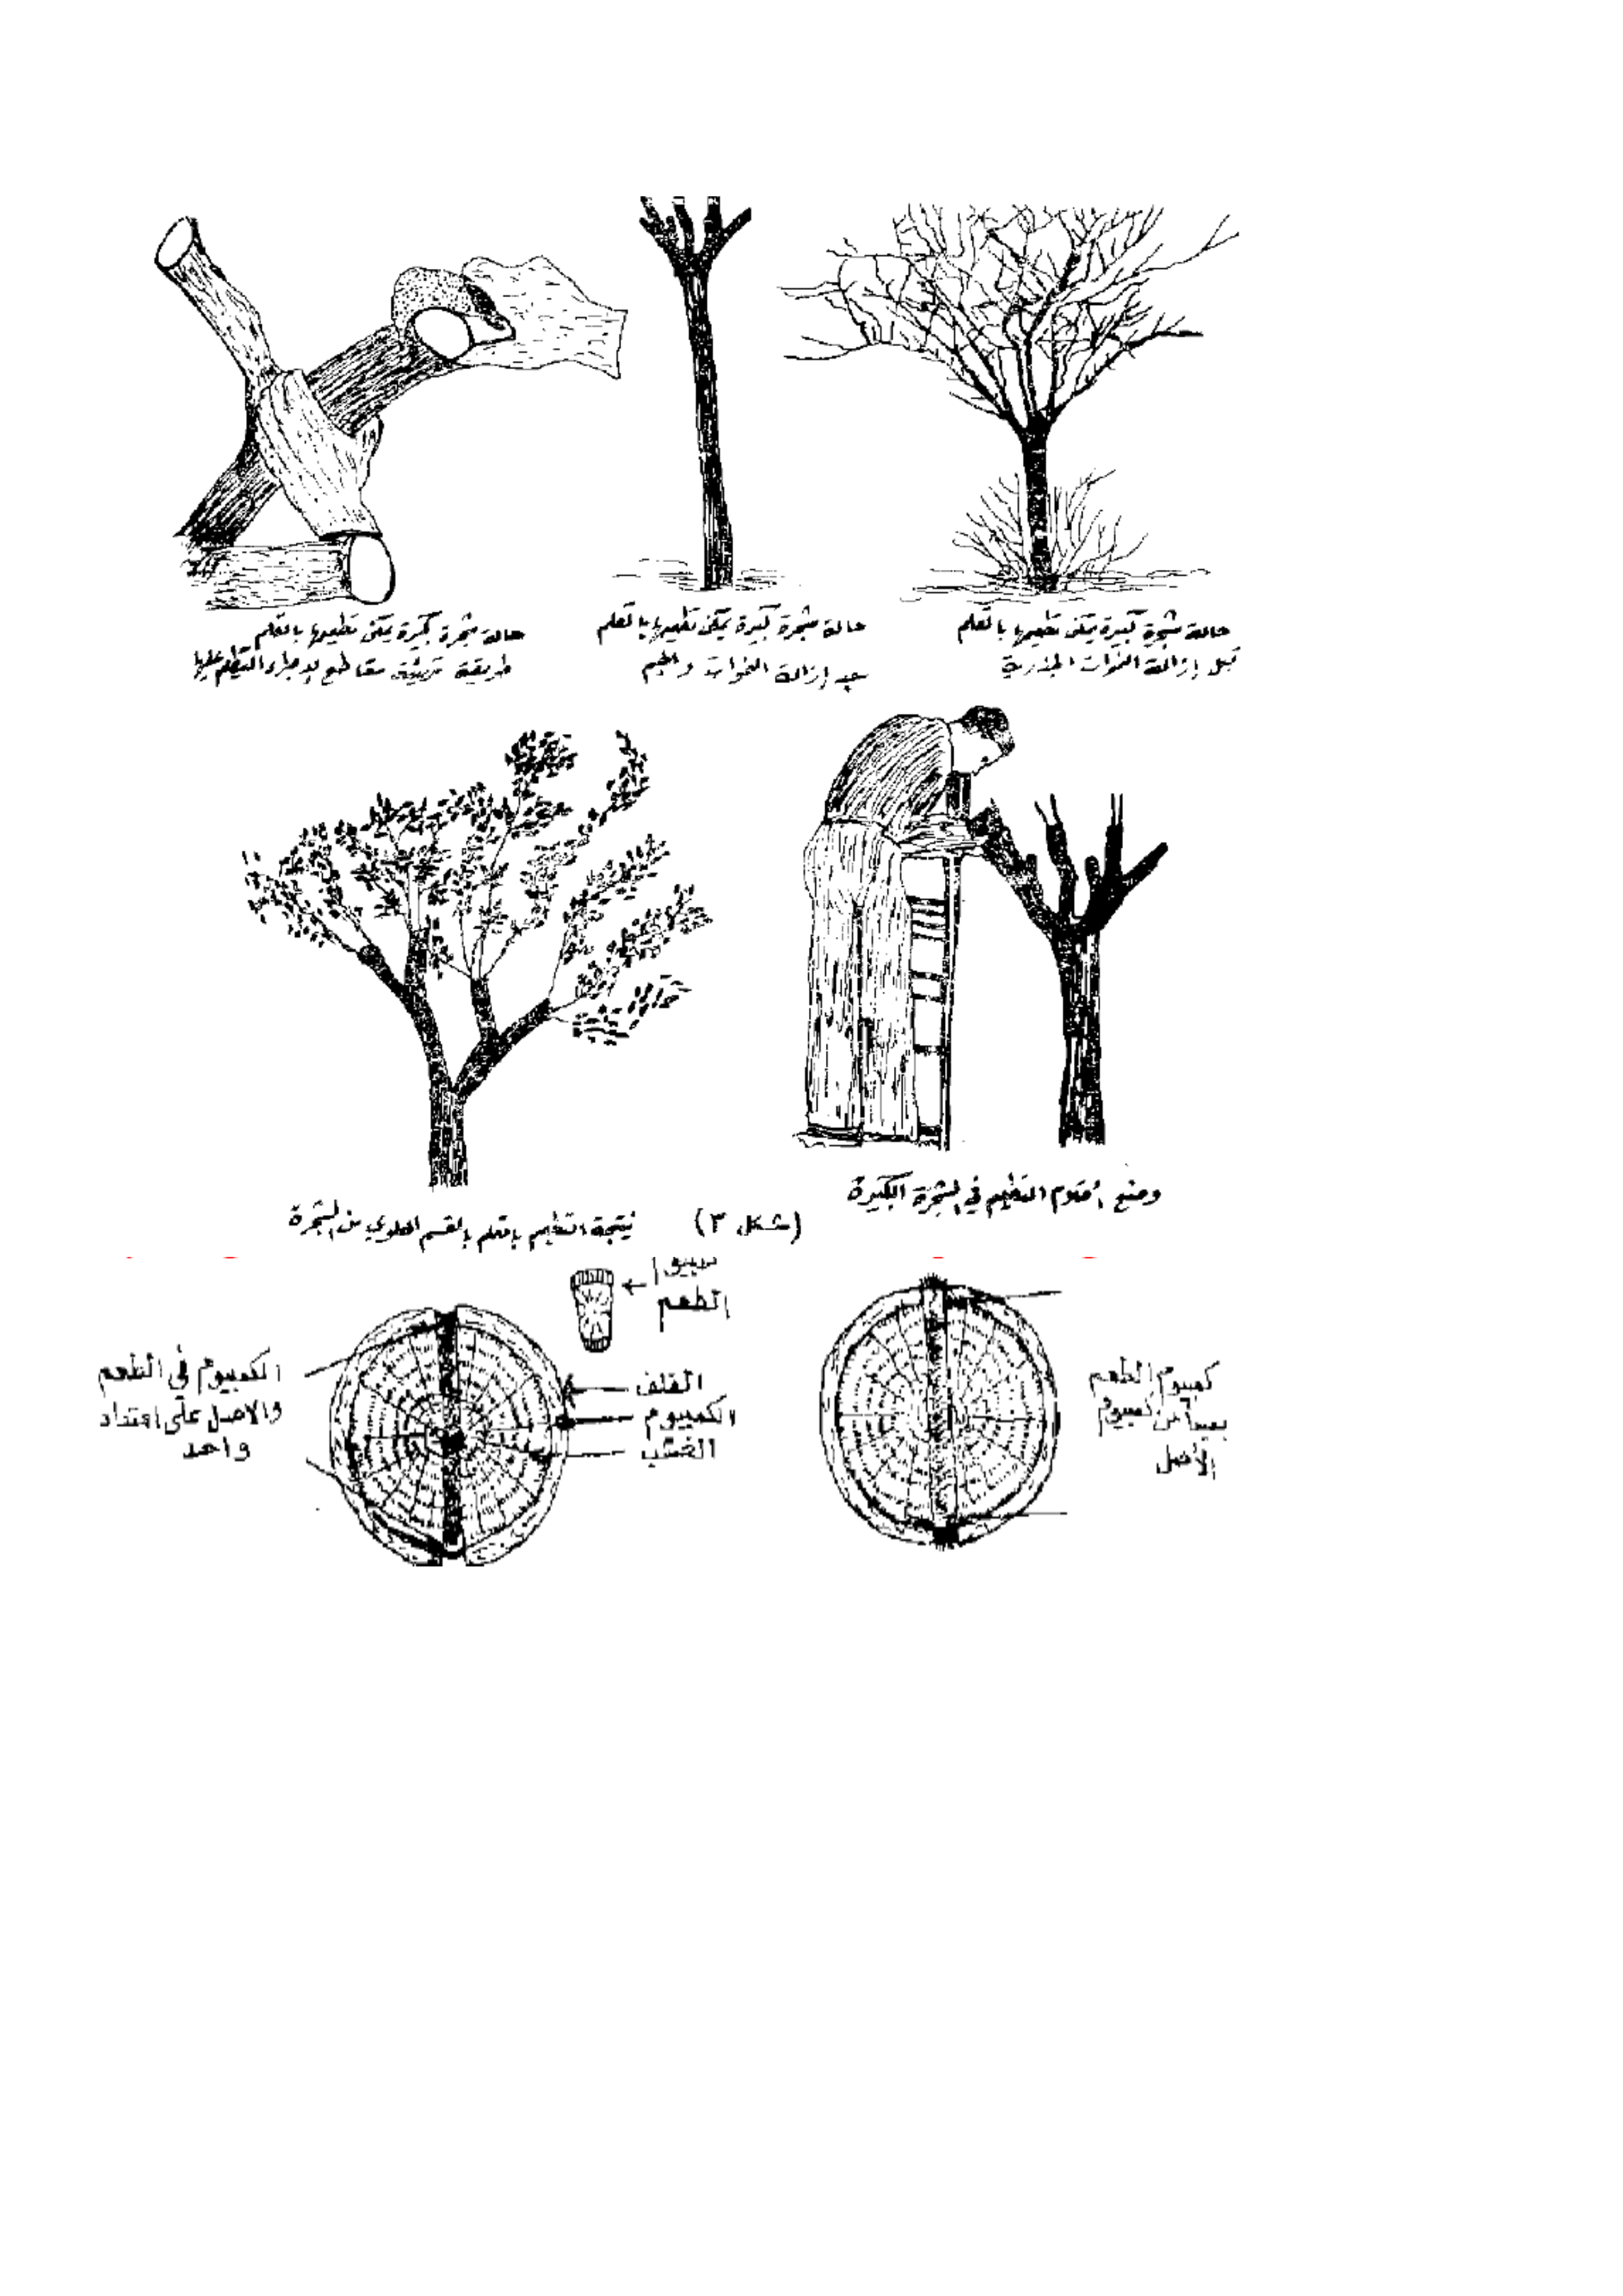 حالة شجرة كبيرة يمكن تطعيمها بالقلم
قبل إزالة النموات الجذرية
حالة شجرة كبيرة يمكن تطعيمها بالقلم
بعد إزالة النموات
حالة شجرة كبيرة يمكن تطعيمها بالقلم
طريقة تهيئة مقاطع لإجراء التطعيم عليها
وضع أقلام التطعيم في الشجرة الكبيرة
(شكل ٣)
نتيجة التطعيم بالقلم بالقسم العلوي من الشجرة
الطعم
القلف
الكمبيوم
الخشب
الكمبيوم في الطعم
والاصل على امتداد
واحد
كمبيوم الطعم
بعيدا عن كمبيوم
الأصل